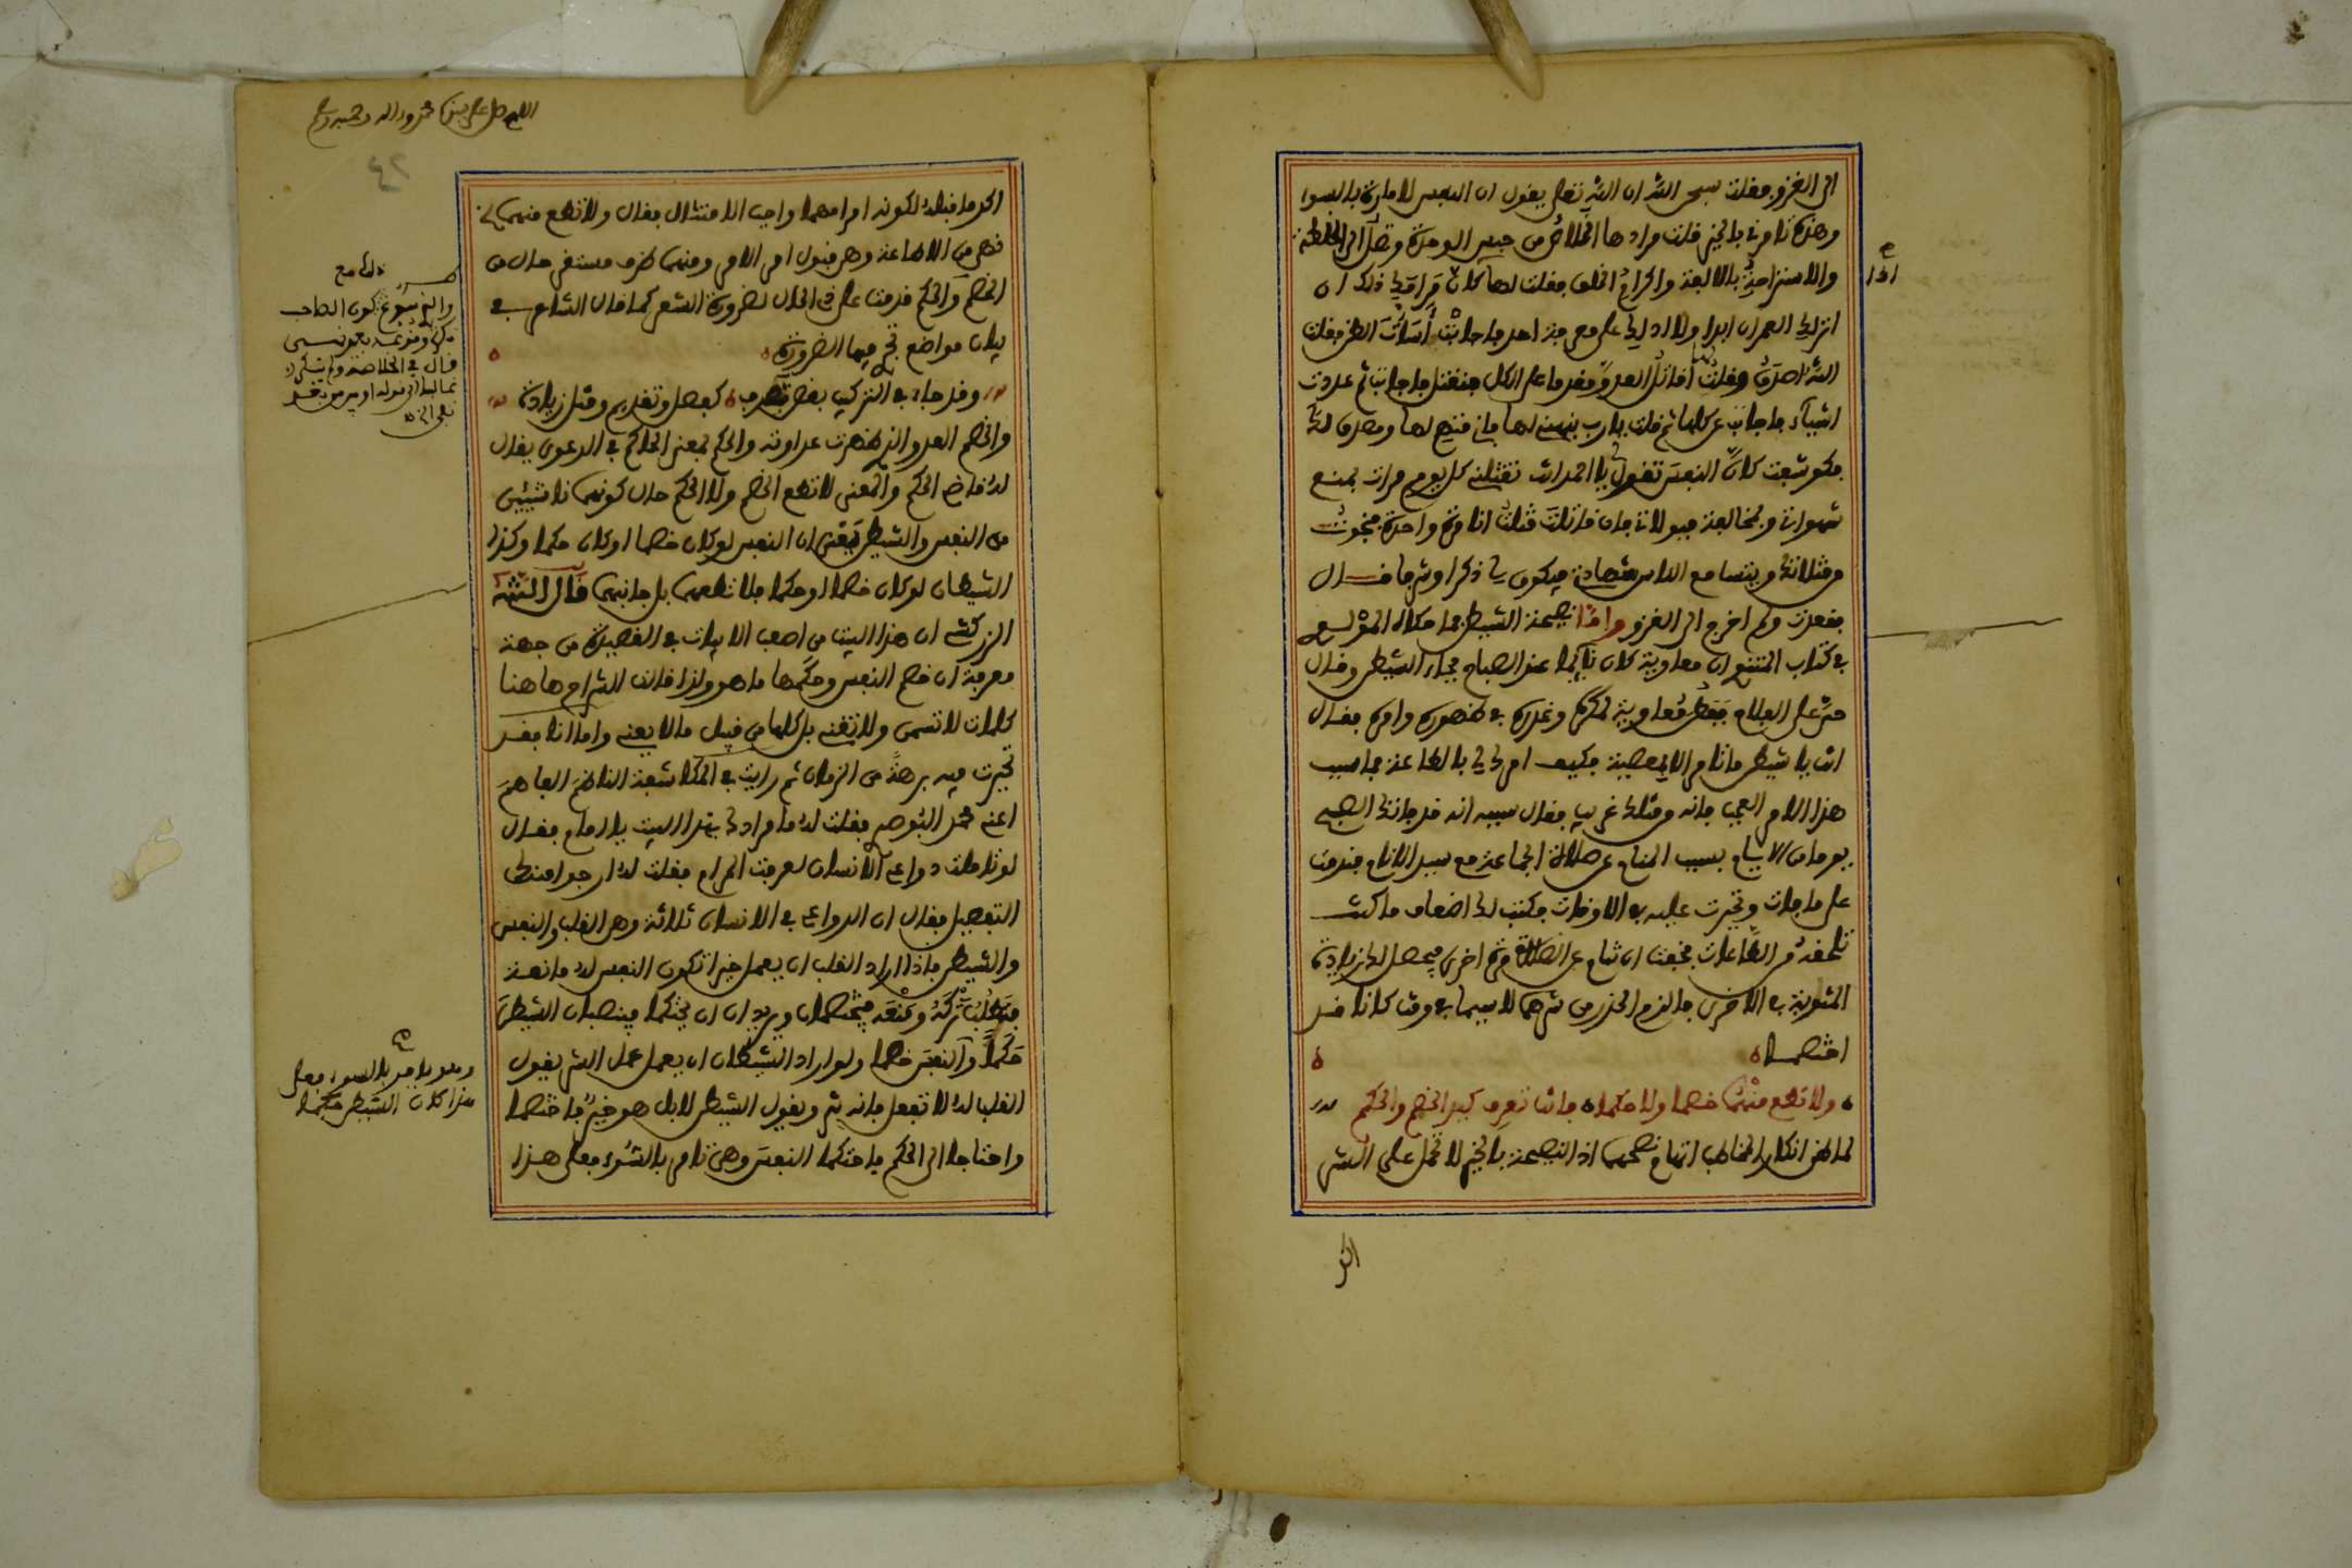 الى الغزو فقلت سبحن الله ان الله تعلى يقول ان النفس لامارة بالسوا
وهذه تامرنى بالخير قلت مرادها الخلاص من حبس الوحدة وتصل الى الخلطة
والاستراحة بالالفة واكرام الخلق فقلت لها كان مرامك ذلك ان
انزلك العمران ابدا ولا ادلك على معرفة احد فاجابت اسأت الظن فقلت
الله اصدق وقلت اقاتل العدو مقدما على الكل فتقتل فاجابت ثم عددت
اشيآء فاجابت عن كلها ثم قلت يارب نبهنى لها فانى متهم لها ومصدق لك
فكوشفت كان النفس تقول يا احمد انت تقتلنى كل يوم مرات بمنع
شهواتى وبمخالفة ميولاتى فان قاتلت قتلت انا مرة واحدة فنجوت
من قتلاتك ويتسامع الناس شهادتى فيكون لى ذكرا وشرفا قال
فقعدت ولم اخرج الى الغزو واما نصيحة الشيطن فما حكاه المولى
فى كتاب المثنوى ان معاوية كان نايما عند الصباح فجاء الشيطن وقال
حى على الفلاح فتفطن معاوية لمكره وغدره فى ظهوره وامره فقال
انت يا شيطن ماتامر الا بالمعصية فكيف امرك لى بالطاعة فما سبب
هذا الامر العجيب فانه من مثلك غريب فقال سببه انه قد فاتتك الصبح
يوما من الايام بسبب المنام عن صلاة الجماعة مع سيد الانام فندمت
على مافات وتحيرت عليه فى الاوقات فكتب لك اضعاف ماكنت
تلحقه من الطاعات فخفت ان تنام عن الصلاة مرة اخرى فيحصل لك زيادة
المثوبة فى الاخرى فالزم الحذر من شرهما لاسيما فى وقت كانا قد
اختصما
ولا تطع منهما خصما ولا حكما فانت تعرف كيد الخصم والحكم
لما ظن انكار المخاطب اتهام نصحهما اذ النصيحة بالخير لا تحمل على الشر
اذا
اكد
اللهم صل على سيدنا محمد واله وصحبه وسلم
٤٢
اكد ماقبله لكونه امرا مهما واجب الامتثال فقال ولا تطع منهما
نهى من الاطاعة وهى قبول امر الامر ومنهما ظرف مستقر حال من
الخصم والحكم قدمت على ذى الحال لضرورة الشعر كما قال الشاعر فى
بيان مواضع تجرى فيها الضرورة
وقد جاء فى التركيب بعض تصرف كفصل وتقديم ومثل زيادة
والخصم العدو الذى ظهرت عداوته والحكم بمعنى الحاكم فى الدعوى يقال
له قاضى الحكم والمعنى لا تطع الخصم ولا الحكم حال كونهما ناشئين
من النفس والشيطن يعنى ان النفس لو كان خصما او كان حكما وكذا
الشيطان لو كان خصما او حكما فلا تطعهما بل جانبهما قال الشيخ
الزركشى ان هذا البيت من اصعب الابيات فى القصيدة من جهة
معرفة ان خصم النفس وحكمها ماهو ولذا قالت الشراح هاهنا
كلمات لا تسمن ولا تغنى بل كلها من قبيل مالا يعنى واما انا فقد
تحيرت فيه برهة من الزمان ثم رايت فى المكاشفة الناظم الفاهم
اعنى محمد البوصيرى فقلت له ما مرادك بهذا البيت يا امام فقال
لو تاملت دواعى الانسان لعرفت المرام فقلت له ارجوا منك
التفصيل فقال ان الدواعى فى الانسان ثلاثة وهى القلب والنفس
والشيطن فاذا اراد القلب ان يعمل خيرا تكون النفس له مانعة
فتطلب تركه ومنعه فيختصمان ويريدان ان يحتكما فينصبان الشيطن
حكما والنفس خصما ولو اراد الشيطان ان يعمل عمل الشر يقول
القلب له لا تفعل فانه شر ويقول الشيطن لا بل هو خير فاختصما
واحتاجا الى الحكم فاحتكما النفس وهى تامر بالسوء فعلى هذا
ذلك مع
والذى سوغ كون الصاحب
نكرة وقوعه بعد نهى
قال فى الخلاصة ولم ينكر
غالبا الى قوله او من بعد
نفى الخ
وهو يامر بالسوء فعلى
هذا كان الشيطن حكما